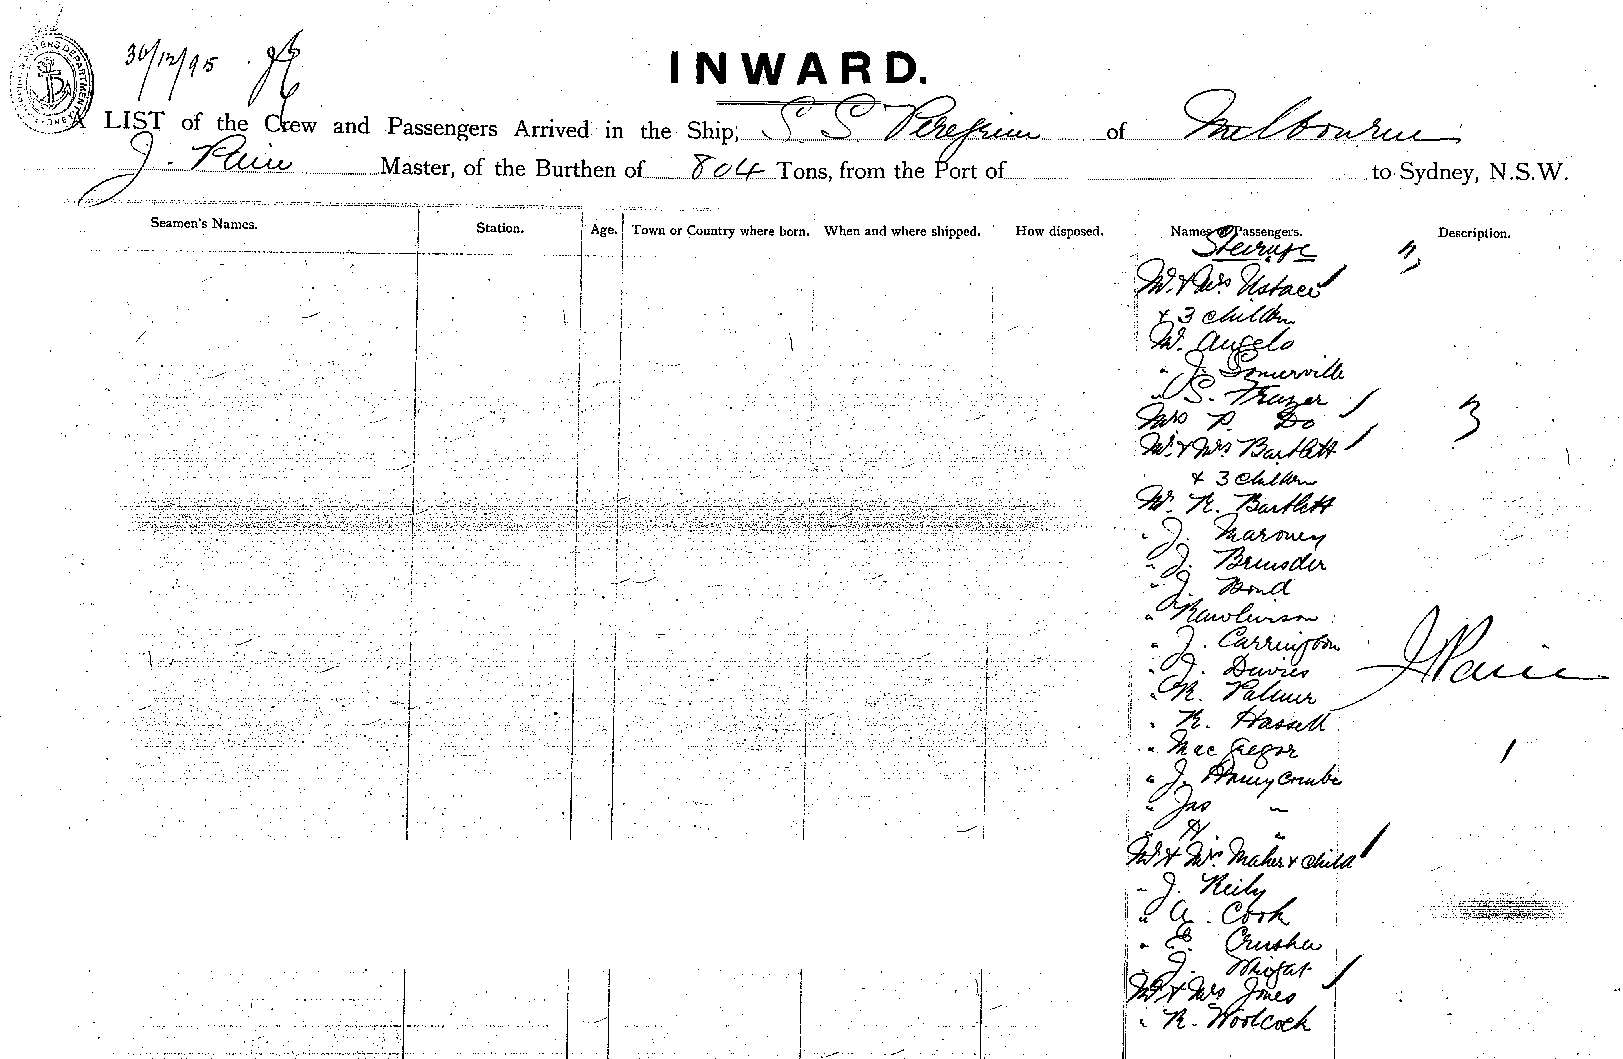 30/12/95
INWARD.
A LIST of the Crew and Passengers Arrived in the Ship, S S Peregrine of Melbourne
J. Pain Master, of the Burthen of 804 Tons, from the Port of to Sydney, N.S.W.
Seamen's Names. Station. Age. Town or Country where born. When and where shipped. How disposed. Names of Passengers. Description.
Steerage
Mr. & Mrs. Ustace
& 3 children
Mr. Angelo
" J. Somerville
" S. Frazer
Mrs P. Do 3
Mr. & Mrs. Bartlett
& 3 children
Mr. R. Bartlett
" J. Maroney
" J.
" J. Bond
" Rawlinson
" J. Carrington
" J. Davies
J Pain
" R. Palmer
" R. Hassell
" MacGregor 1
" J. Honeycombe
" Jas "
" H. "
Mr & Mrs Maher & child
" J. Reily
" A. Cook
" E. Crusher
" J.
Mr & Mrs Jones
" R. Woolcock